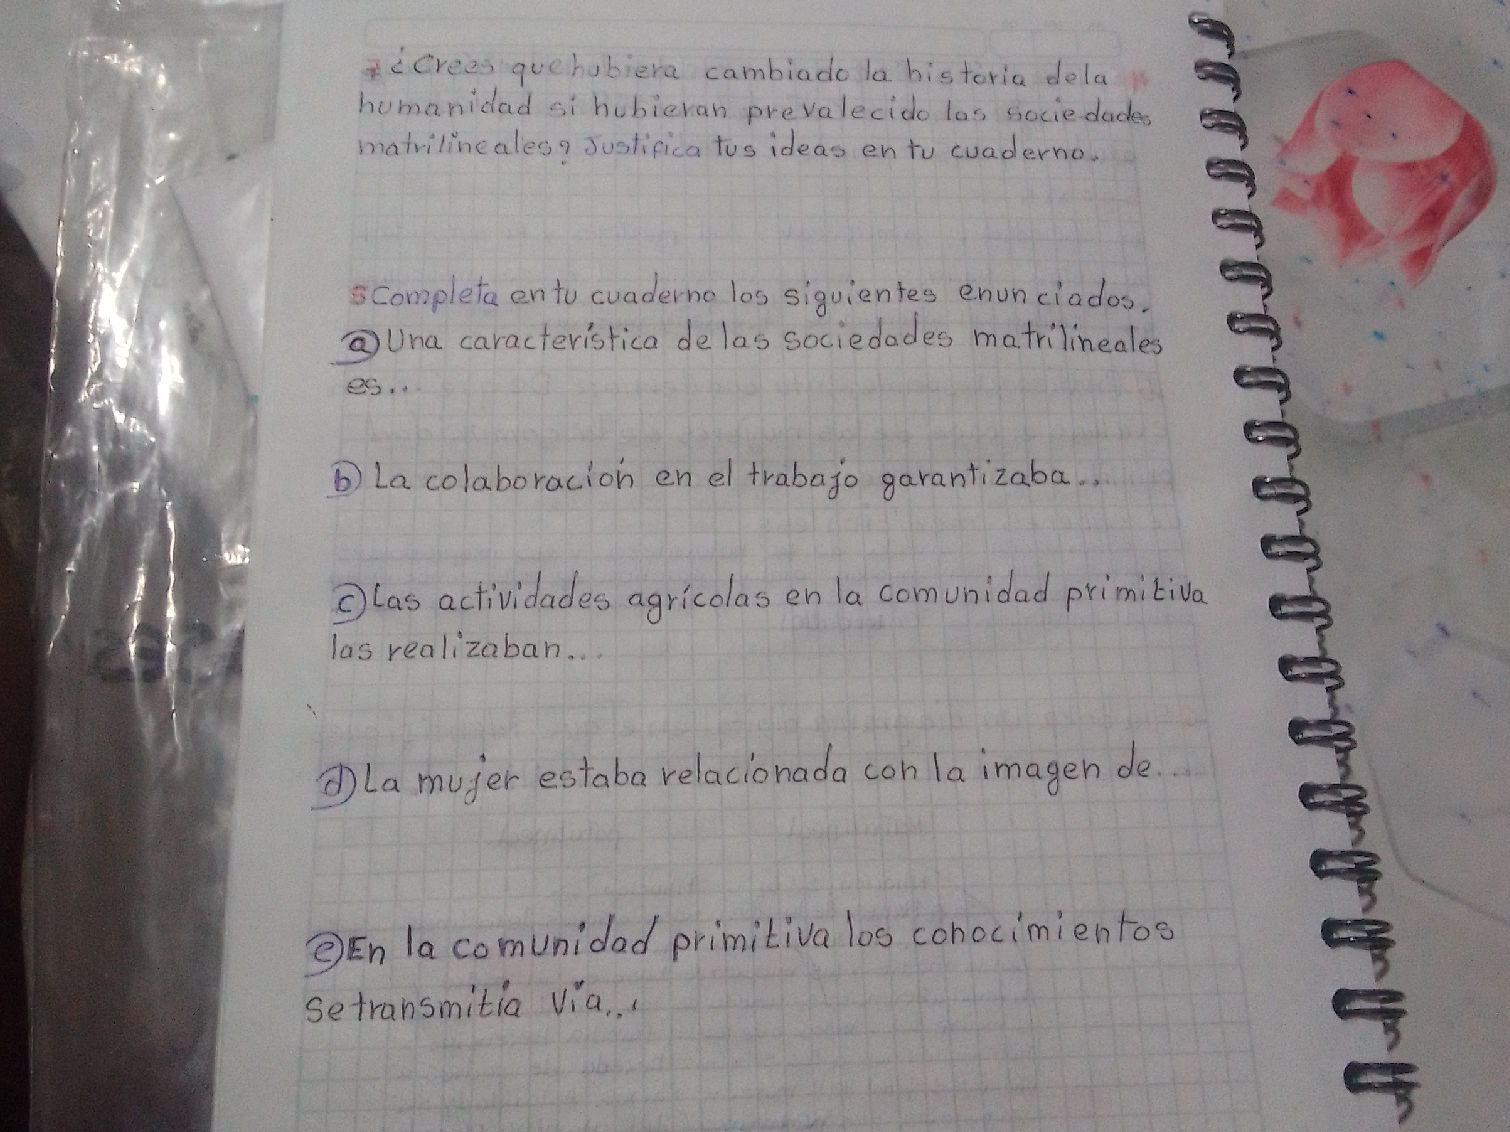 ¿Crees que hubiera cambiado la historia de la
humanidad si hubieran prevalecido las sociedades
matrilineales? Justifica tus ideas en tu cuaderno.
5 Completa en tu cuaderno los siguientes enunciados.
a) Una característica de las sociedades matrilineales
es...
b) La colaboración en el trabajo garantizaba...
c) Las actividades agrícolas en la comunidad primitiva
las realizaban...
d) La mujer estaba relacionada con la imagen de...
e) En la comunidad primitiva los conocimientos
se transmitía vía...